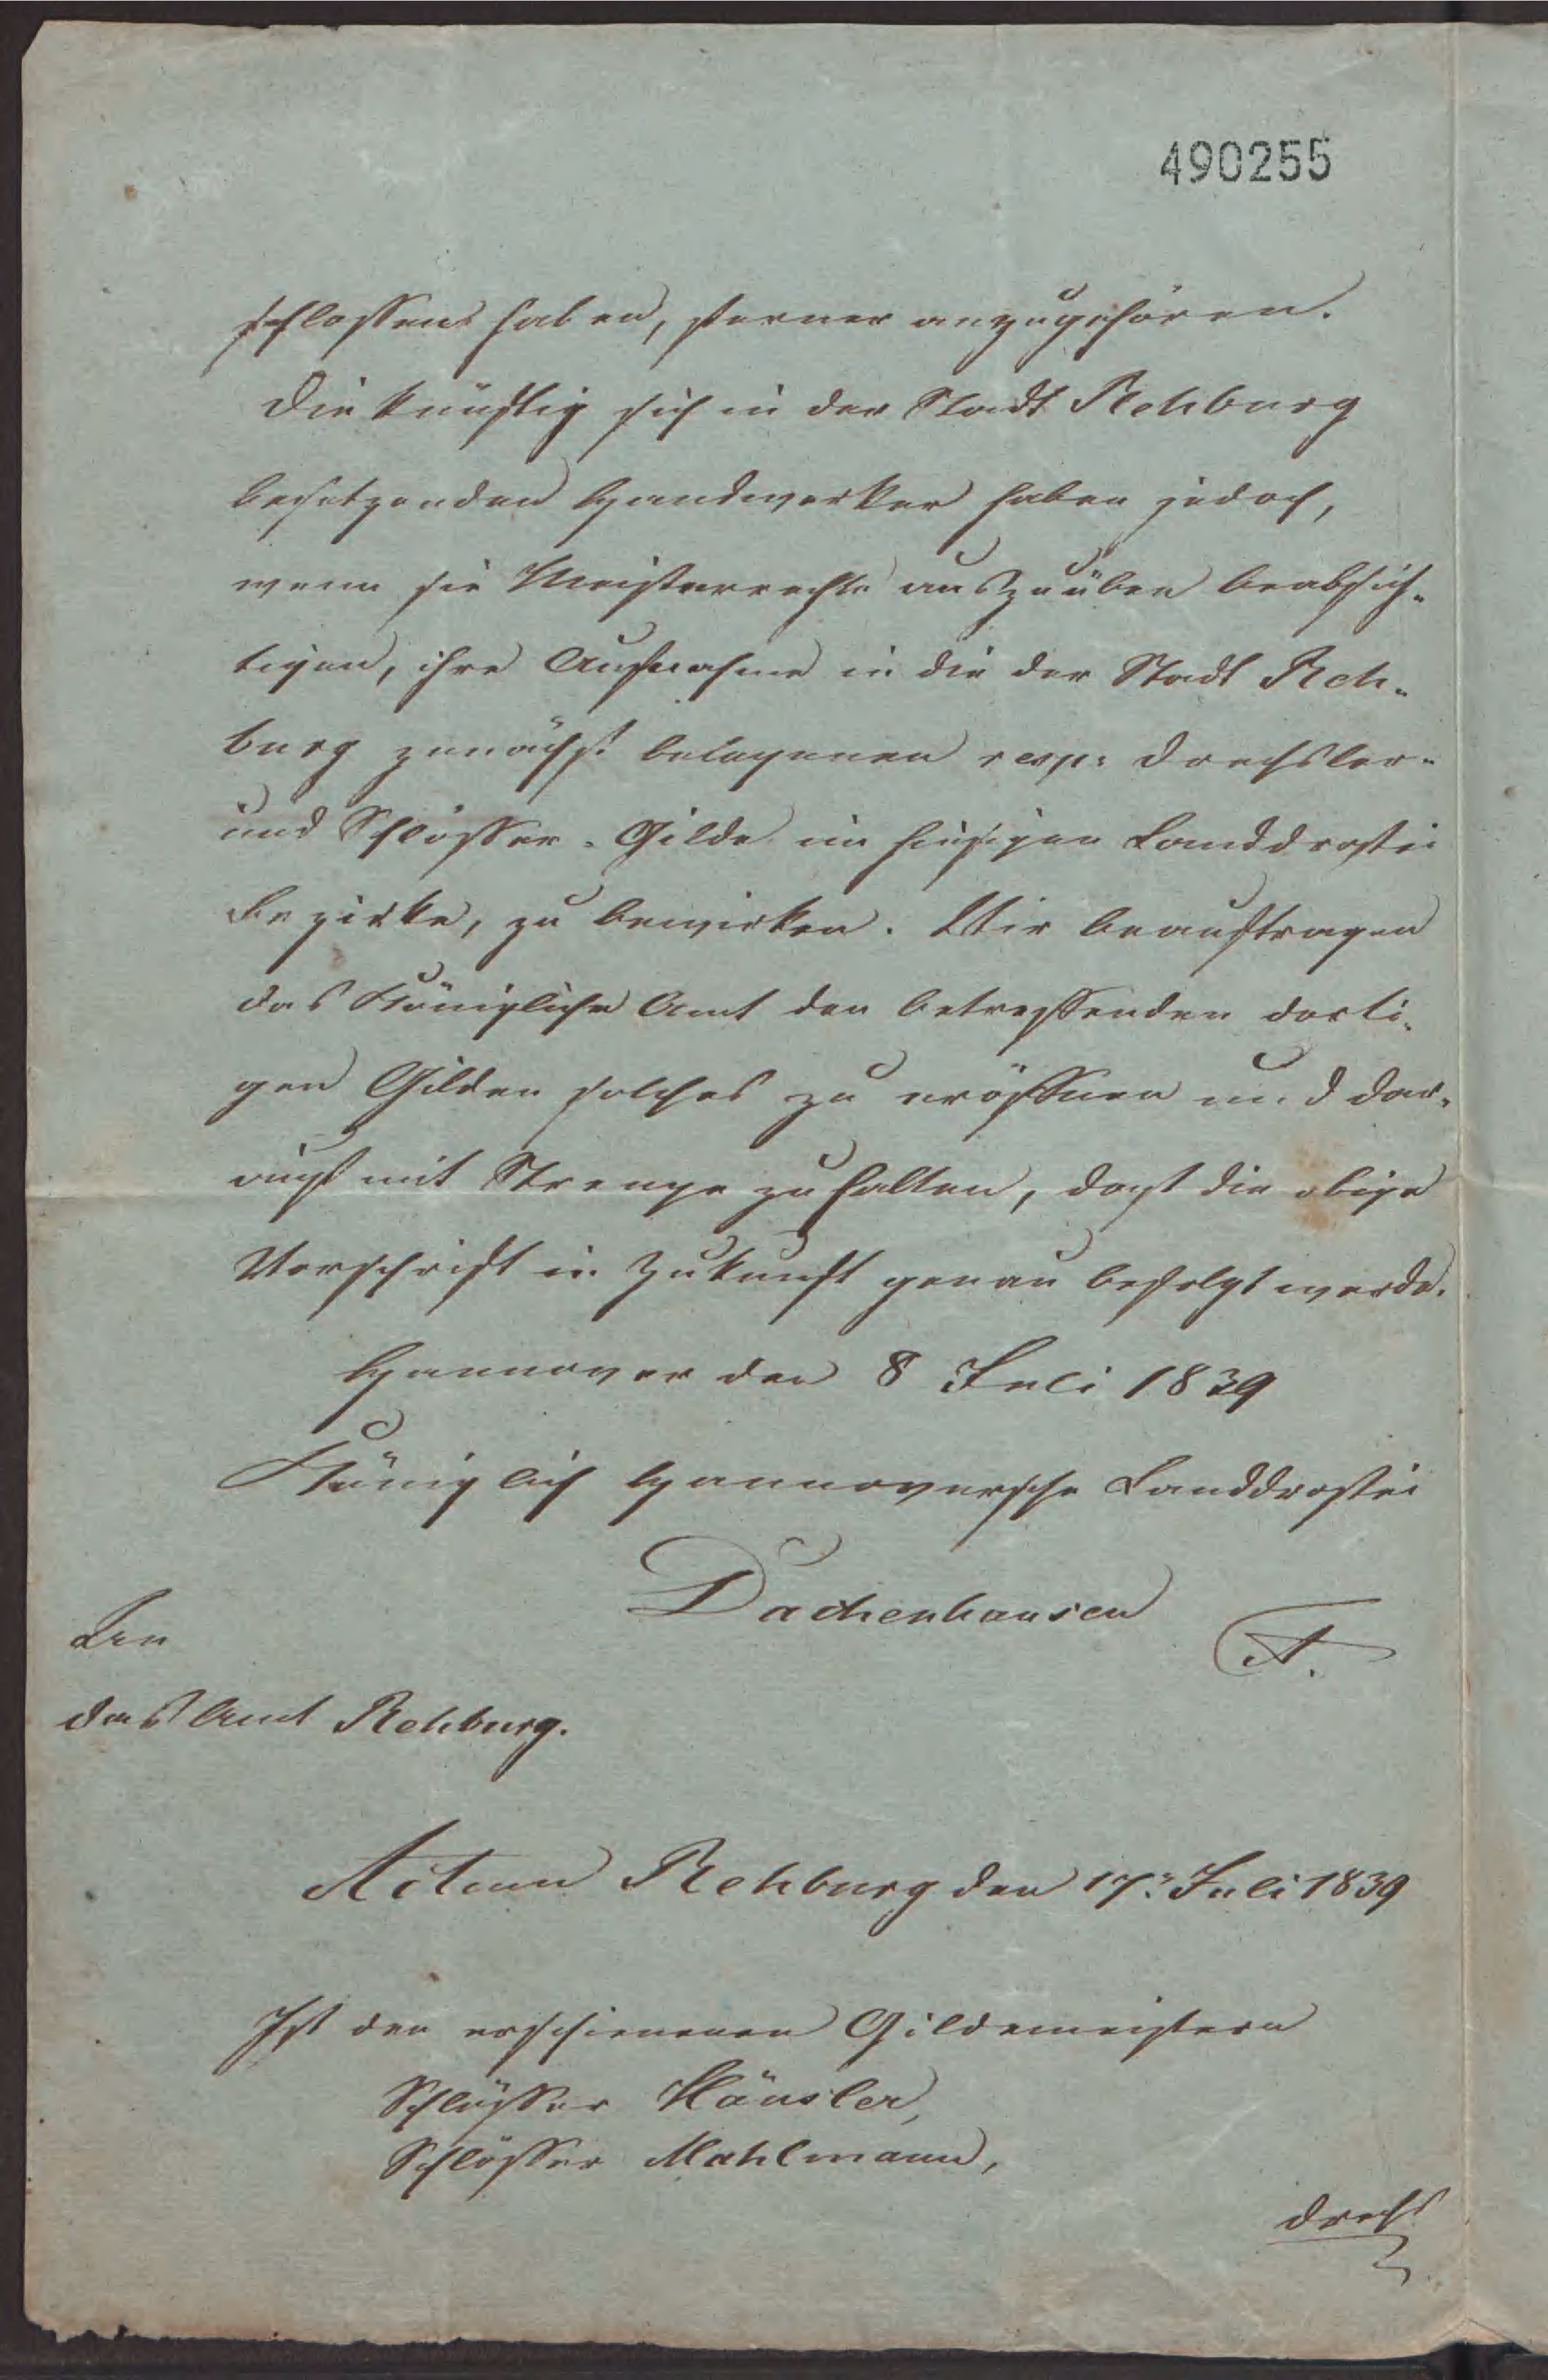 490255
schlossen haben, ferner anzugehören.
Die künftig sich in der Stadt Rehburg
besetzenden Handwerker haben jedoch,
wenn sie Meisterrechte auszuüben beabsich-
tigen, ihre Aufnahme in die der Stadt Reh-
burg zunächst belegenen resp: Drechsler-
und Schlösser-Gilde im hiesigen Landdrostei
Bezirke, zu bewirken. Wir beauftragen
das Königliche Amt den betreffenden dorti-
gen Gilden solches zu eröffnen und dar-
auf mit Strenge zu halten, daß die obige
Vorschrift in Zukunft genau befolgt werde.
Hannover den 8 Juli 1839
Königlich Hannoversche Landdrostei
Dachenhausen
An
das Amt Rehburg.
Actum Rehburg den 17: Juli 1839
Ist den erschienenen Gildemeistern
Schlösser Häusler,
Schlösser Mahlmann,
Drechs